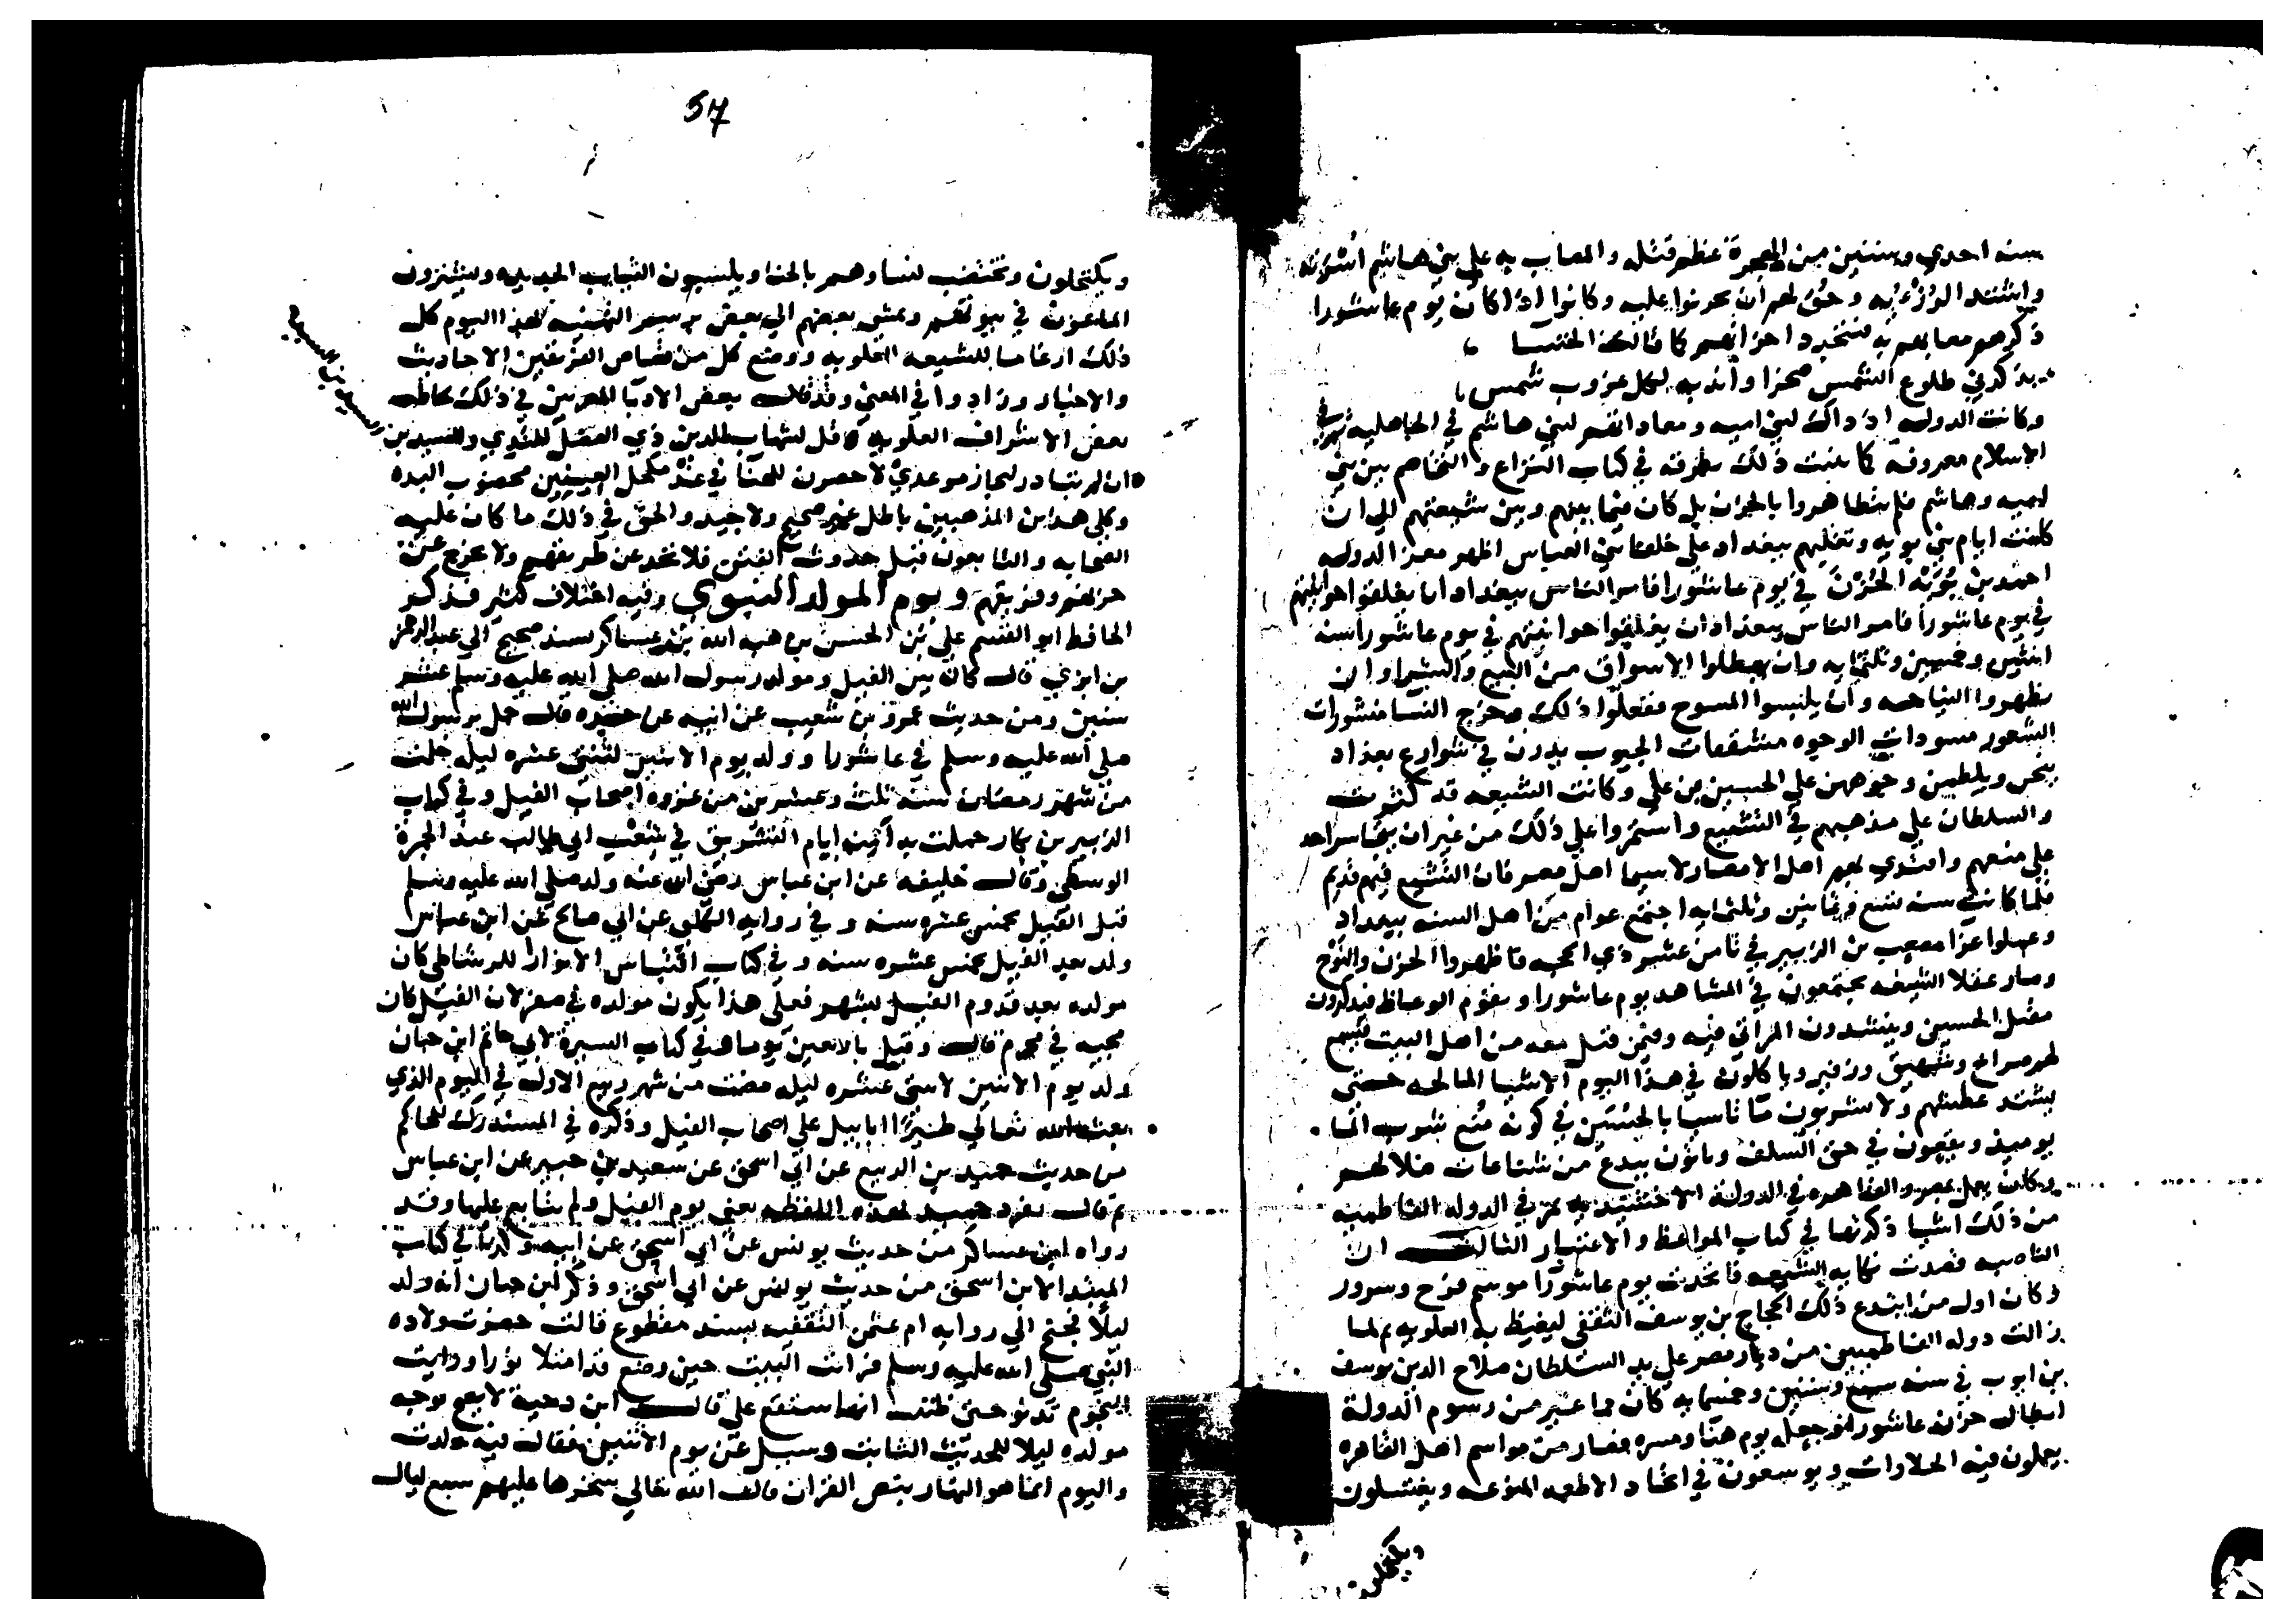 سنه احدي وستين من الهجرة عظم قتله والمصاب به علي بني هاشم اسرته
واشتد الرزء به وحق لهم ان يحزنوا عليه وكانوا اذا كان يوم عاشورا
ذكرهم مصابهم به فتتجدد احزانهم كما قالت الخنسا
يذكرني طلوع الشمس صخرا واندبه لكل غروب شمس
وكانت الدوله اذ ذاك لبني اميه ومعاداتهم لبني هاشم في الجاهليه
الاسلام معروفه كما بينت ذلك بطرقه في كتاب النزاع والتخاصم بين بني
اميه وهاشم فلم يتظاهروا بالحزن بل كان فيما بينهم وبين شيعتهم الي ان
كانت ايام بني بويه وتغلبهم ببغداد علي خلفا بني العباس اظهر معز الدوله
احمد بن بويه الحزن في يوم عاشورا فامر الناس ببغداد ان يغلقوا حوانيتهم
في يوم عاشورا فامر الناس ببغداد ان يغلقوا حوانيتهم في يوم عاشورا سنه
اثنتين وخمسين وثلثمايه وان يعطلوا الاسواق من البيع والشرا وان
يظهروا النياحه وان يلبسوا المسوح ففعلوا ذلك وخرج النسا منشورات
الشعور مسودات الوجوه مشققات الجيوب يدرن في شوارع بغداد
ينحن ويلطمن وجوههن علي الحسين بن علي وكانت الشيعه قد كثرت
والسلطان علي مذهبهم في التشيع واستمروا علي ذلك من غير ان يتجاسر احد
علي منعهم واقتدي بهم اهل الامصار لاسيما اهل مصر فان التشيع فيهم قديم
فلما كانت سنه تسع وثمانين وثلثمايه اجتمع عوام من اهل السنه ببغداد
وعملوا عزا مصعب بن الزبير في ثامن عشر ذي الحجه فاظهروا الحزن والنوح
وصار عقلا الشيعه يجتمعون في المشاهد يوم عاشورا ويقوم الوعاظ فيذكرون
مقتل الحسين وينشدون المراثي فيه وفيمن قتل معه من اهل البيت
لهم صراخ وشهيق وزفير وياكلون في هذا اليوم الاشيا المالحه حتي
يشتد عطشهم ولا يشربون ما تاسيا بالحسين في كونه منع شرب الما
يوميذ ويقعون في حق السلف وياتون ببدع من شناعات ضلالهم
وكان يعمل بمصر والقاهره في الدولة الاخشيديه ثم في الدوله الفاطميه
من ذلك اشيا ذكرتها في كتاب المواعظ والاعتبار الثالث ان
الناصبه قصدت نكايه الشيعه فاتخذت يوم عاشورا موسم فرح وسرور
وكان اول من ابتدع ذلك الحجاج بن يوسف الثقفي ليغيظ به العلويه ثم لما
زالت دوله الفاطميين من ديار مصر علي يد السلطان صلاح الدين يوسف
بن ايوب في سنه سبع وستين وخمسمايه كان مما غير من رسوم الدولة
ابطال حزن عاشورا وجعله يوم هنا ومسره فصار من مواسم اهل القاهره
يعملون فيه الحلاوات ويوسعون في اتخاد الاطعمه المنوعه ويغتسلون
ويكتحلون
57
ويكتحلون وتختضب نساوهم بالحنا ويلبسون الثياب الجديده وينثرون
الماعون في بيوتهم ويمشي بعضهم الي بعض برسم التهنيه بهذا اليوم كل
ذلك ارغاما للشيعه العلويه ووضع كل من قصاص الفريقين الاحاديث
والاخبار وزادوا في المعني وقد قال بعض الادبا المصريين في ذلك يخاطب
بعض الاشراف العلويه
ان لم تبادر لنجاز موعدي لاحضرن للهنا في غد مكحل العينين مخضوب اليده
وكلي هذين المذهبين باطل غير صحيح ولا جيد والحق في ذلك ما كان عليه
الصحابه والتابعون قبل حدوث الفتن فلا نحد عن طريقهم ولا نخرج عن
حزبهم وفريقهم ويوم المولد النبوي وفيه اختلاف كثير فذكر
الحافظ ابو القسم علي بن الحسن بن هبه الله بن عساكر بسند صحيح الي عبد الرحمن
بن ابزي قال كان بين الفيل ومولد رسول الله صلي الله عليه وسلم عشر
سنين ومن حديث عمرو بن شعيب عن ابيه عن جده قال حمل برسول الله
صلي الله عليه وسلم في عاشورا وولد يوم الاثنين لثنتي عشره ليله خلت
من شهر رمضان سنه ثلث وعشرين من غزوه اصحاب الفيل وفي كتاب
الزبير بن بكار حملت به آمنه ايام التشريق في شعب ابي طالب عند الجمرة
الوسطي وقال خليفه عن ابن عباس رضي الله عنه ولد صلي الله عليه وسلم
قبل الفيل بخمس عشره سنه وفي روايه الكلبي عن ابي صالح عن ابن عباس
ولد بعد الفيل بخمس عشره سنه وفي كتاب اقتباس الانوار للرشاطي كان
مولده بعد قدوم الفيل بشهر فعلي هذا يكون مولده في صفر لان الفيل كان
مجيه في محرم قال وقيل بالاربعين يوما وفي كتاب السيرة لابي حاتم ابن حبان
ولد يوم الاثنين لاثنتي عشره ليله مضت من شهر ربيع الاول في اليوم الذي
بعث الله تعالي طيرا ابابيل علي اصحاب الفيل وذكره في المستدرك للحاكم
من حديث حميد بن الربيع عن ابي اسحق عن سعيد بن جبير عن ابن عباس
ثم قال تفرد حميد بهذه اللفظه يعني يوم الفيل ولم يتابع عليها وقد
رواه ابن عساكر من حديث يونس عن ابي اسحق عن ابيه في كتاب
المبتدا لابن اسحق من حديث يونس عن ابي اسحق وذكر ابن حبان انه ولد
ليلا فجنح الي روايه ام عثمن الثقفيه بسند مقطوع قالت حضرت ولاده
النبي صلي الله عليه وسلم فرايت البيت حين وضع قد امتلا نورا ورايت
النجوم تدنو حتي ظننت انها ستقع علي قال ابن دحية لا يصح بوجه
مولده ليلا للحديث الثابت وسيل عن يوم الاثنين فقال فيه ولدت
واليوم انما هو النهار بنص القران قال الله تعالي سخرها عليهم سبع ليال